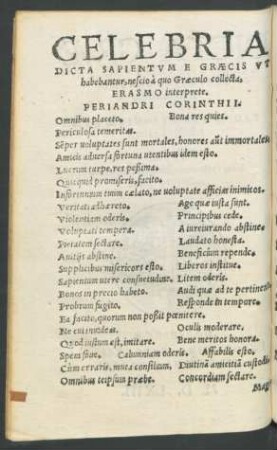 CELEBRIA
DICTA SAPIENTVM E GRÆCIS VT
habebantur, nescio à quo Græculo collecta,
ERASMO interprete.
PERIANDRI CORINTHII.
Omnibus placeto. Bona res quies.
Periculosa temeritas.
Sēper voluptates sunt mortales, honores aūt immortales
Amicis aduersa fortuna utentibus idem esto.
Lucrum turpe, res pessima.
Quicquid promiseris, facito.
Infortunium tuum cælato, ne voluptate afficias inimicos.
Veritati adhæreto. Age quæ iusta sunt.
Violentiam oderis. Principibus cede.
Voluptati tempera. A iureiurando abstine.
Pietatem sectare. Laudato honesta.
A vitijs abstine. Beneficium repende.
Supplicibus misericors esto. Liberos institue.
Sapientum utere consuetudine. Litem oderis.
Bonos in precio habeto. Audi quæ ad te pertinent
Probrum fugito. Responde in tempore.
Ea facito, quorum non possit pœnitere.
Ne cui inuideas. Oculis moderare.
Quod iustum est, imitare. Bene meritos honora.
Spem foue. Calumniam oderis. Affabilis esto.
Cùm erraris, muta consilium. Diutinā amicitiā custodi
Omnibus teipsum præbe. Concordiam sectare.